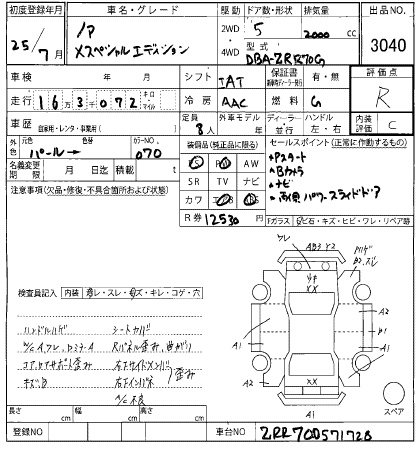 初度登録年月 車名・グレード 駆動 ドア数・形状 排気量 出品NO.
25/7月 ノア 2WD 5 2000 cc 3040
Xスペシャルエディション 4WD 型式 DBA-ZRR70G
車検 年 月 シフト IAT 保証書 有・無 評価点
走行 163,072 キロ マイル 冷房 AAC 燃料 G R
車歴 自家用・レンタ・事業用( ) 定員 8人 外車モデル 年 ディーラー 並行 ハンドル 左・右 内装評価 C
外色 元色 パール 色替 カラーNO. 070 装備品(純正品に限る) セールスポイント(正常に作動するもの)
名義変更期限 月 日迄 積載 t PS PW AW *Pスタート
注意事項(欠品・修復・不具合箇所および状態) SR TV ナビ *Bカメラ
カワ *ナビ
R券 12530 *両側パワースライドドア
Fガラス 飛石・キズ・ヒビ・ワレ・リペア跡
ワレ AB3 Y2
検査員記入 内装 スレ・キズ・キレ・コゲ・穴
ハンドルハゲ シートカバー
コアサポート歪み 左右サイドメンバー歪み
キズ、B 右下インパネ
A/C不良
XX
A2 A1 A1 A2 B1 A1
XX
A1
スペア
長さ cm 幅 cm 高さ cm
登録NO 車台NO ZRR700571728